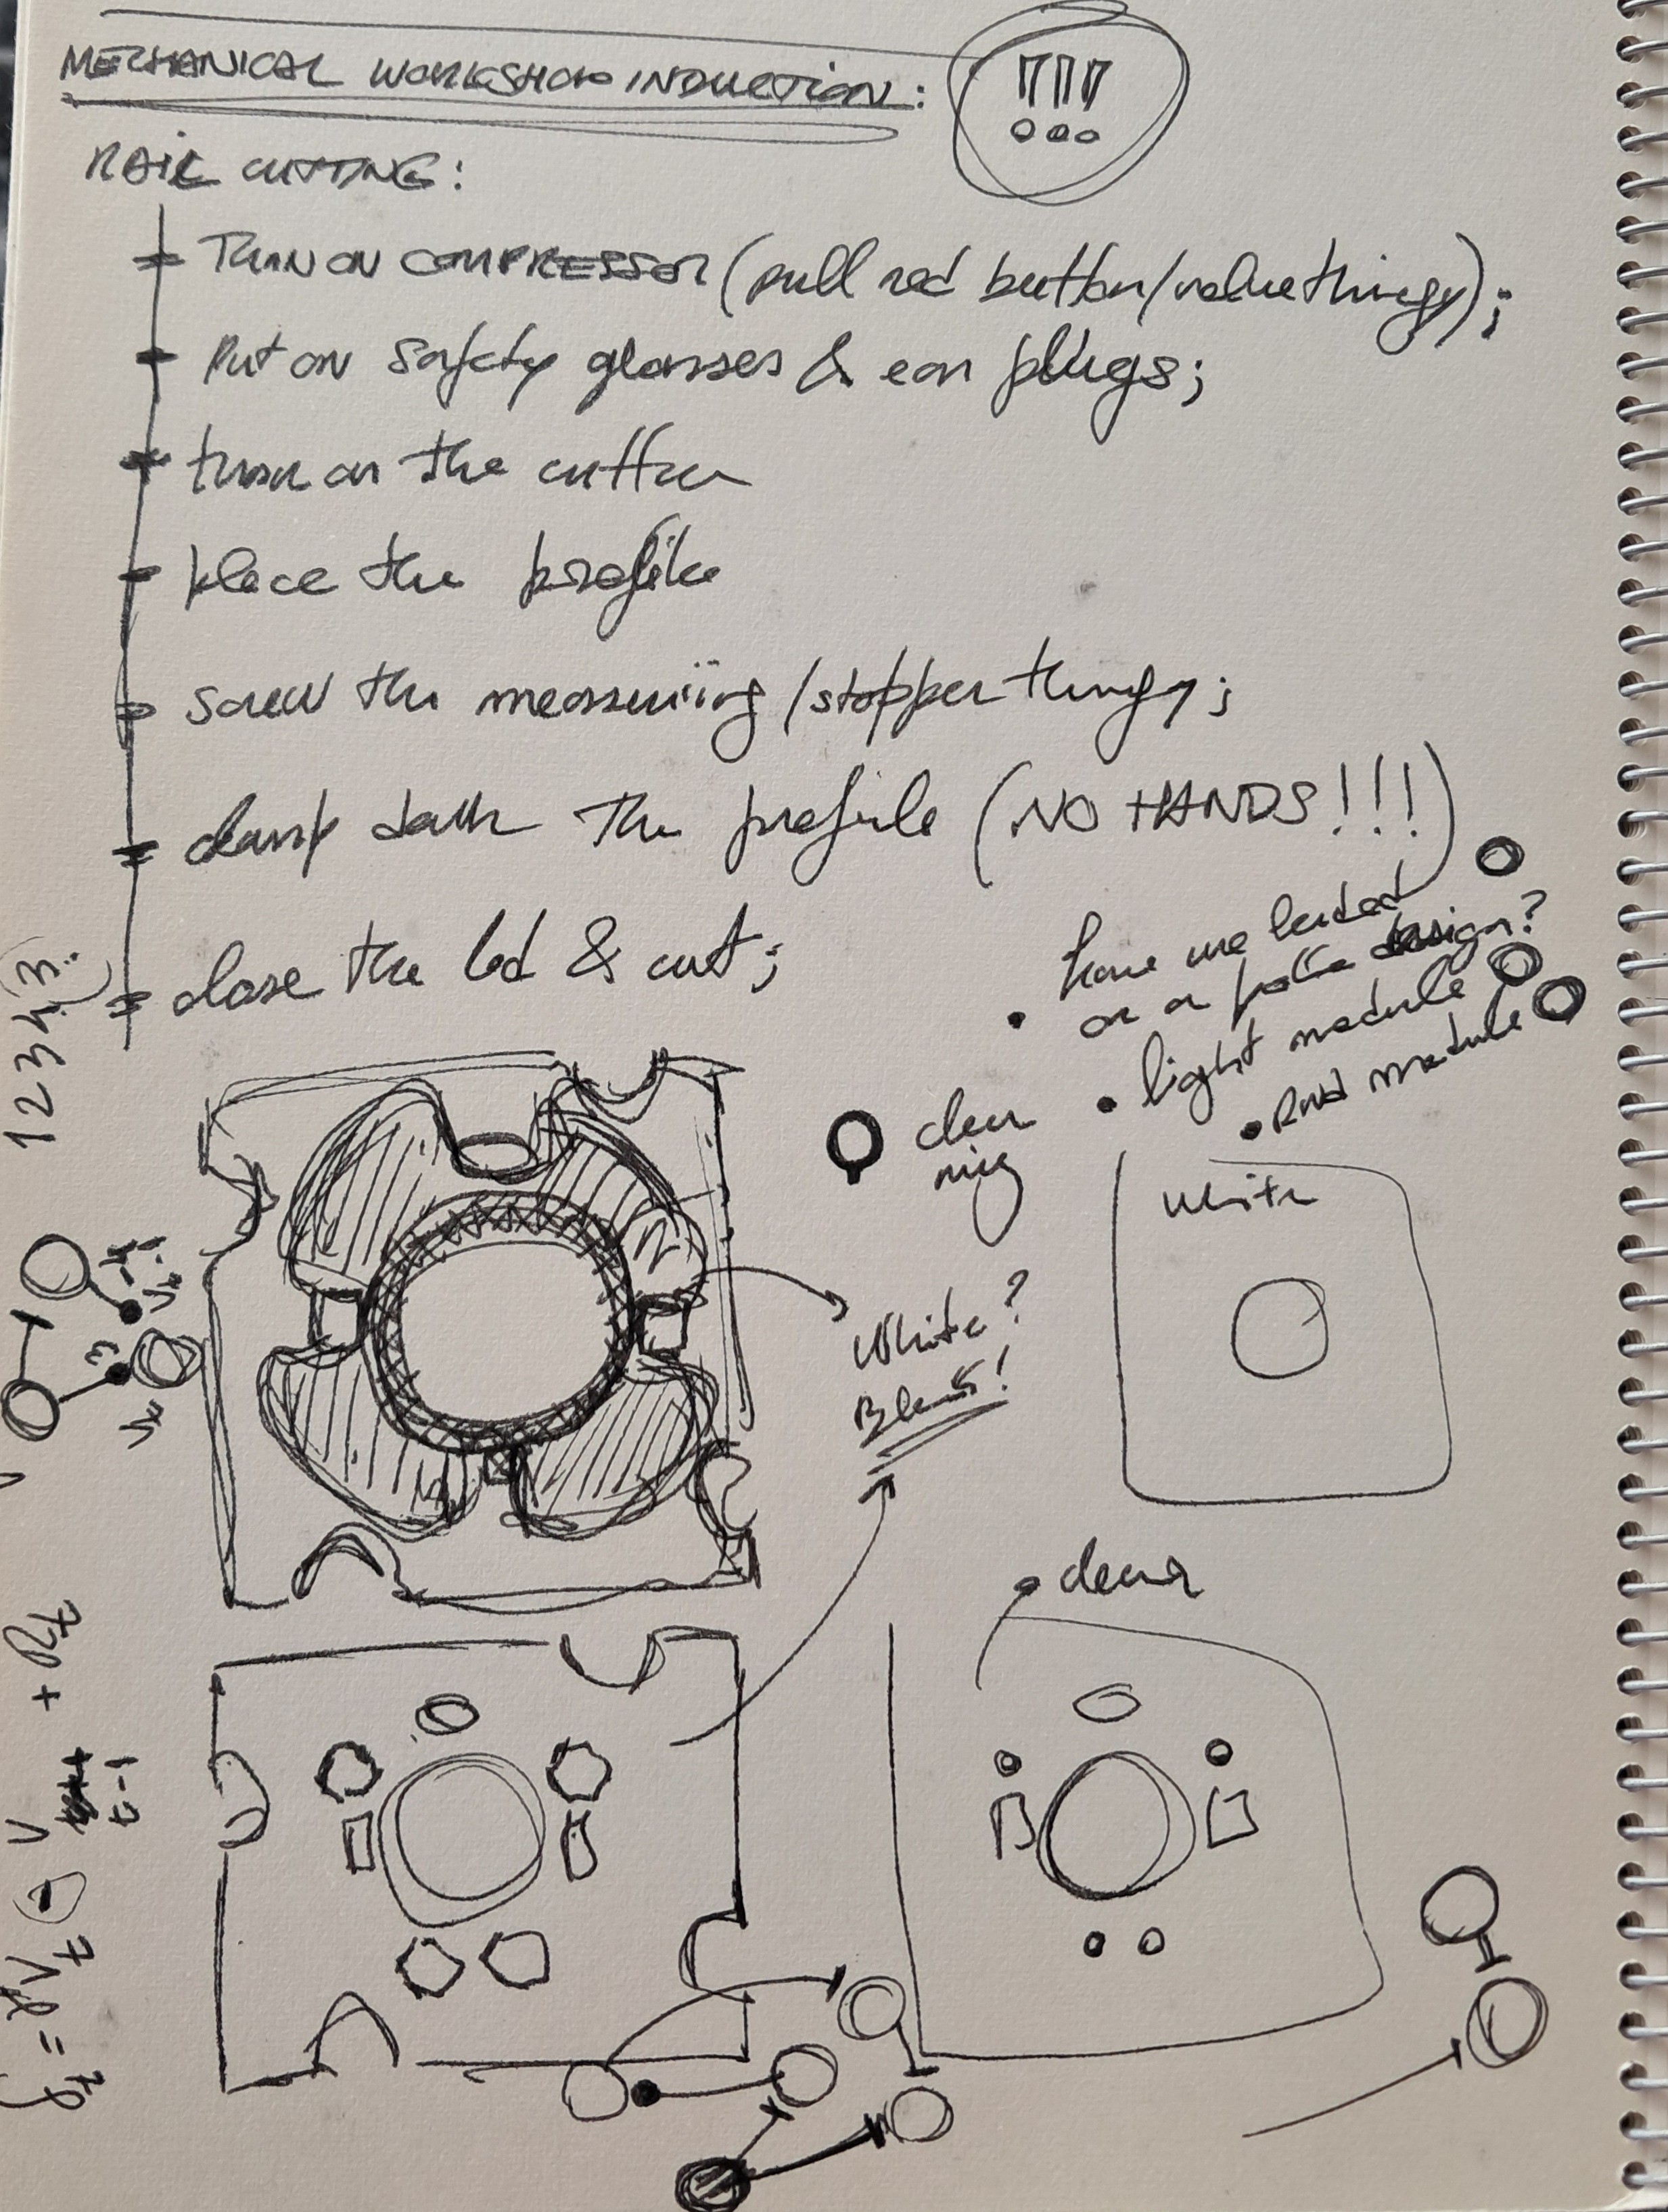 MECHANICAL WORKSHOP INDUCTION:
!!!
RAIL CUTTING:
TURN ON COMPRESSOR (pull red button/valve thingy);
Put on safety glasses & ear plugs;
turn on the cutter
place the profile
screw the measuring/stopper thingy;
clamp down the profile (NO HANDS!!!)
close the lid & cut;
have we landed
on a design?
light module
module
1234
white
White?
Black!
clear
+ Rt
t-1